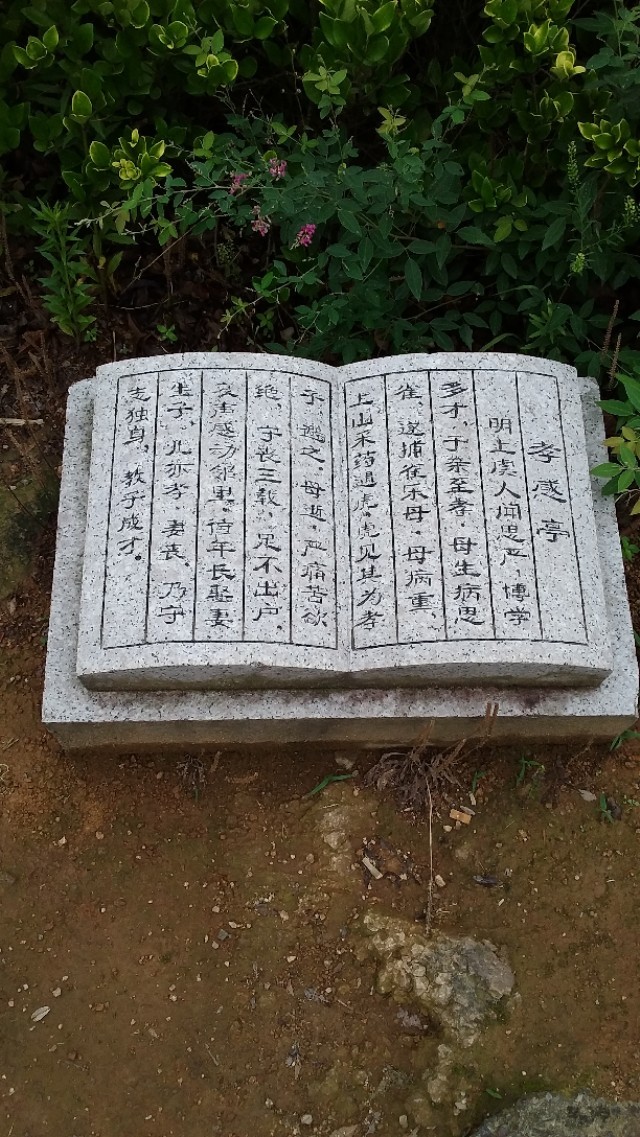 孝感亭
明上虞人闻思严,博学
多才,于亲至孝,母生病思
雀,遂捕雀乐母,母病重,
上山采药遇虎,虎见其为孝
子,避之。母逝,严痛苦欲
绝,守丧三载,足不出户,
哀声感动邻里,待年长娶妻
生子,儿亦孝,妻丧,乃守
志独身,教子成才。